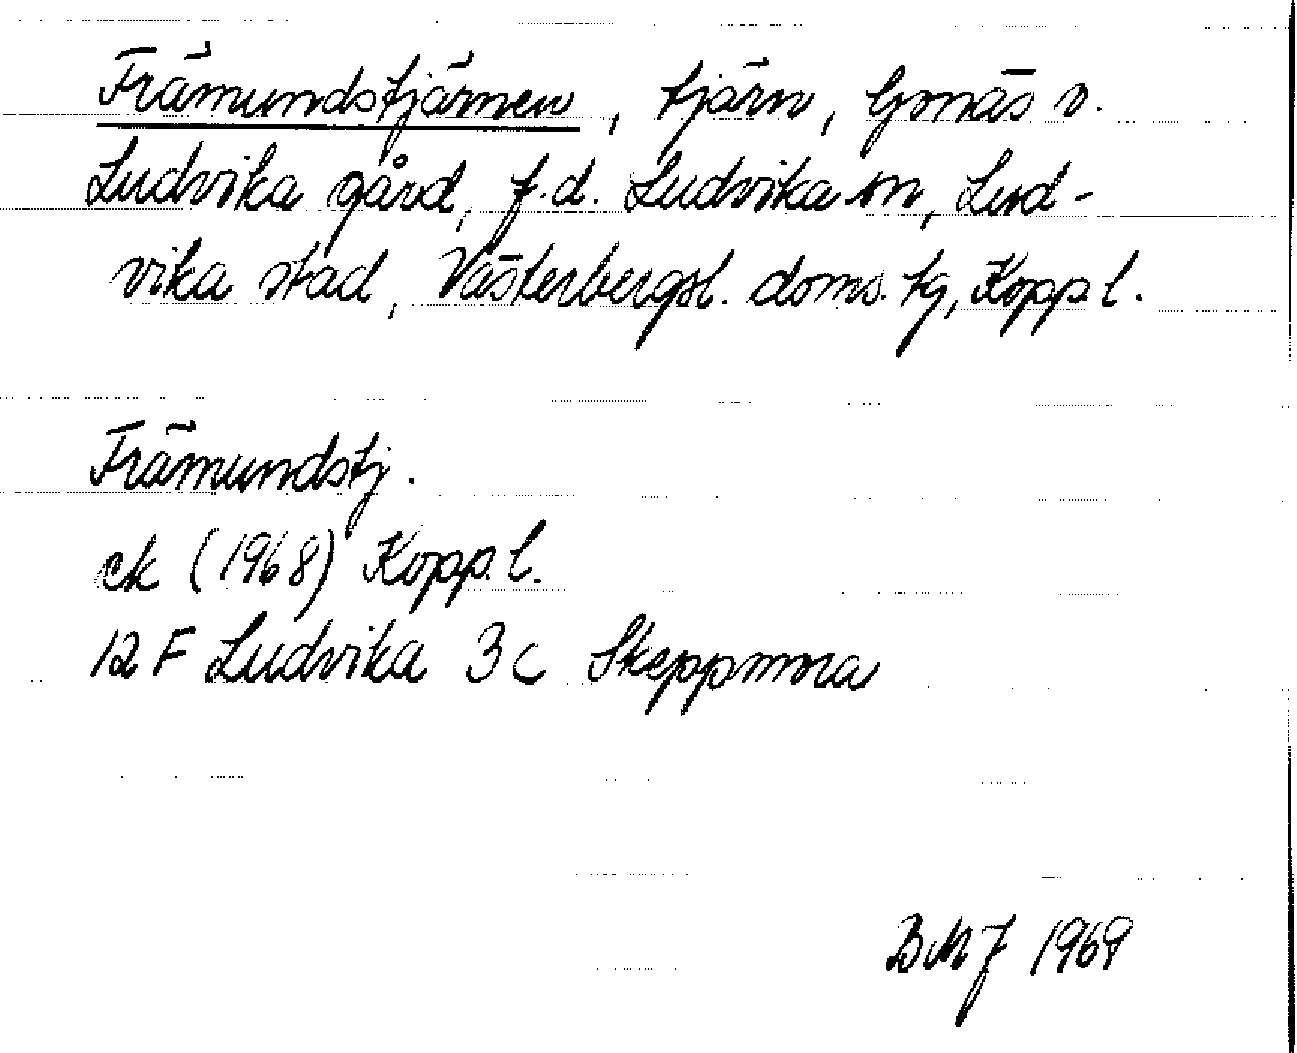 Främundstjärnen, tjärn, Gonäs v.
Ludvika gård, f.d. Ludvika sn, Lud-
vika stad, Västerbergsl. doms. tg, Kopp. l.
Främundstj.
ek (1968) Kopp. l.
12 F Ludvika 3c Skeppmora
BMJ 1969